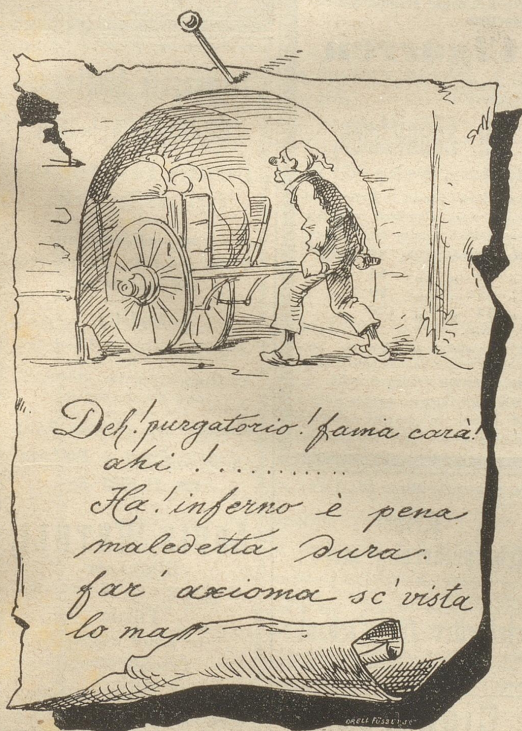 Deh! purgatorio! fama carà!
ahi !..........
Ha! inferno è pena
maledetta dura.
far' axioma sc' vista
lo ma
ORELL FÜSSLI